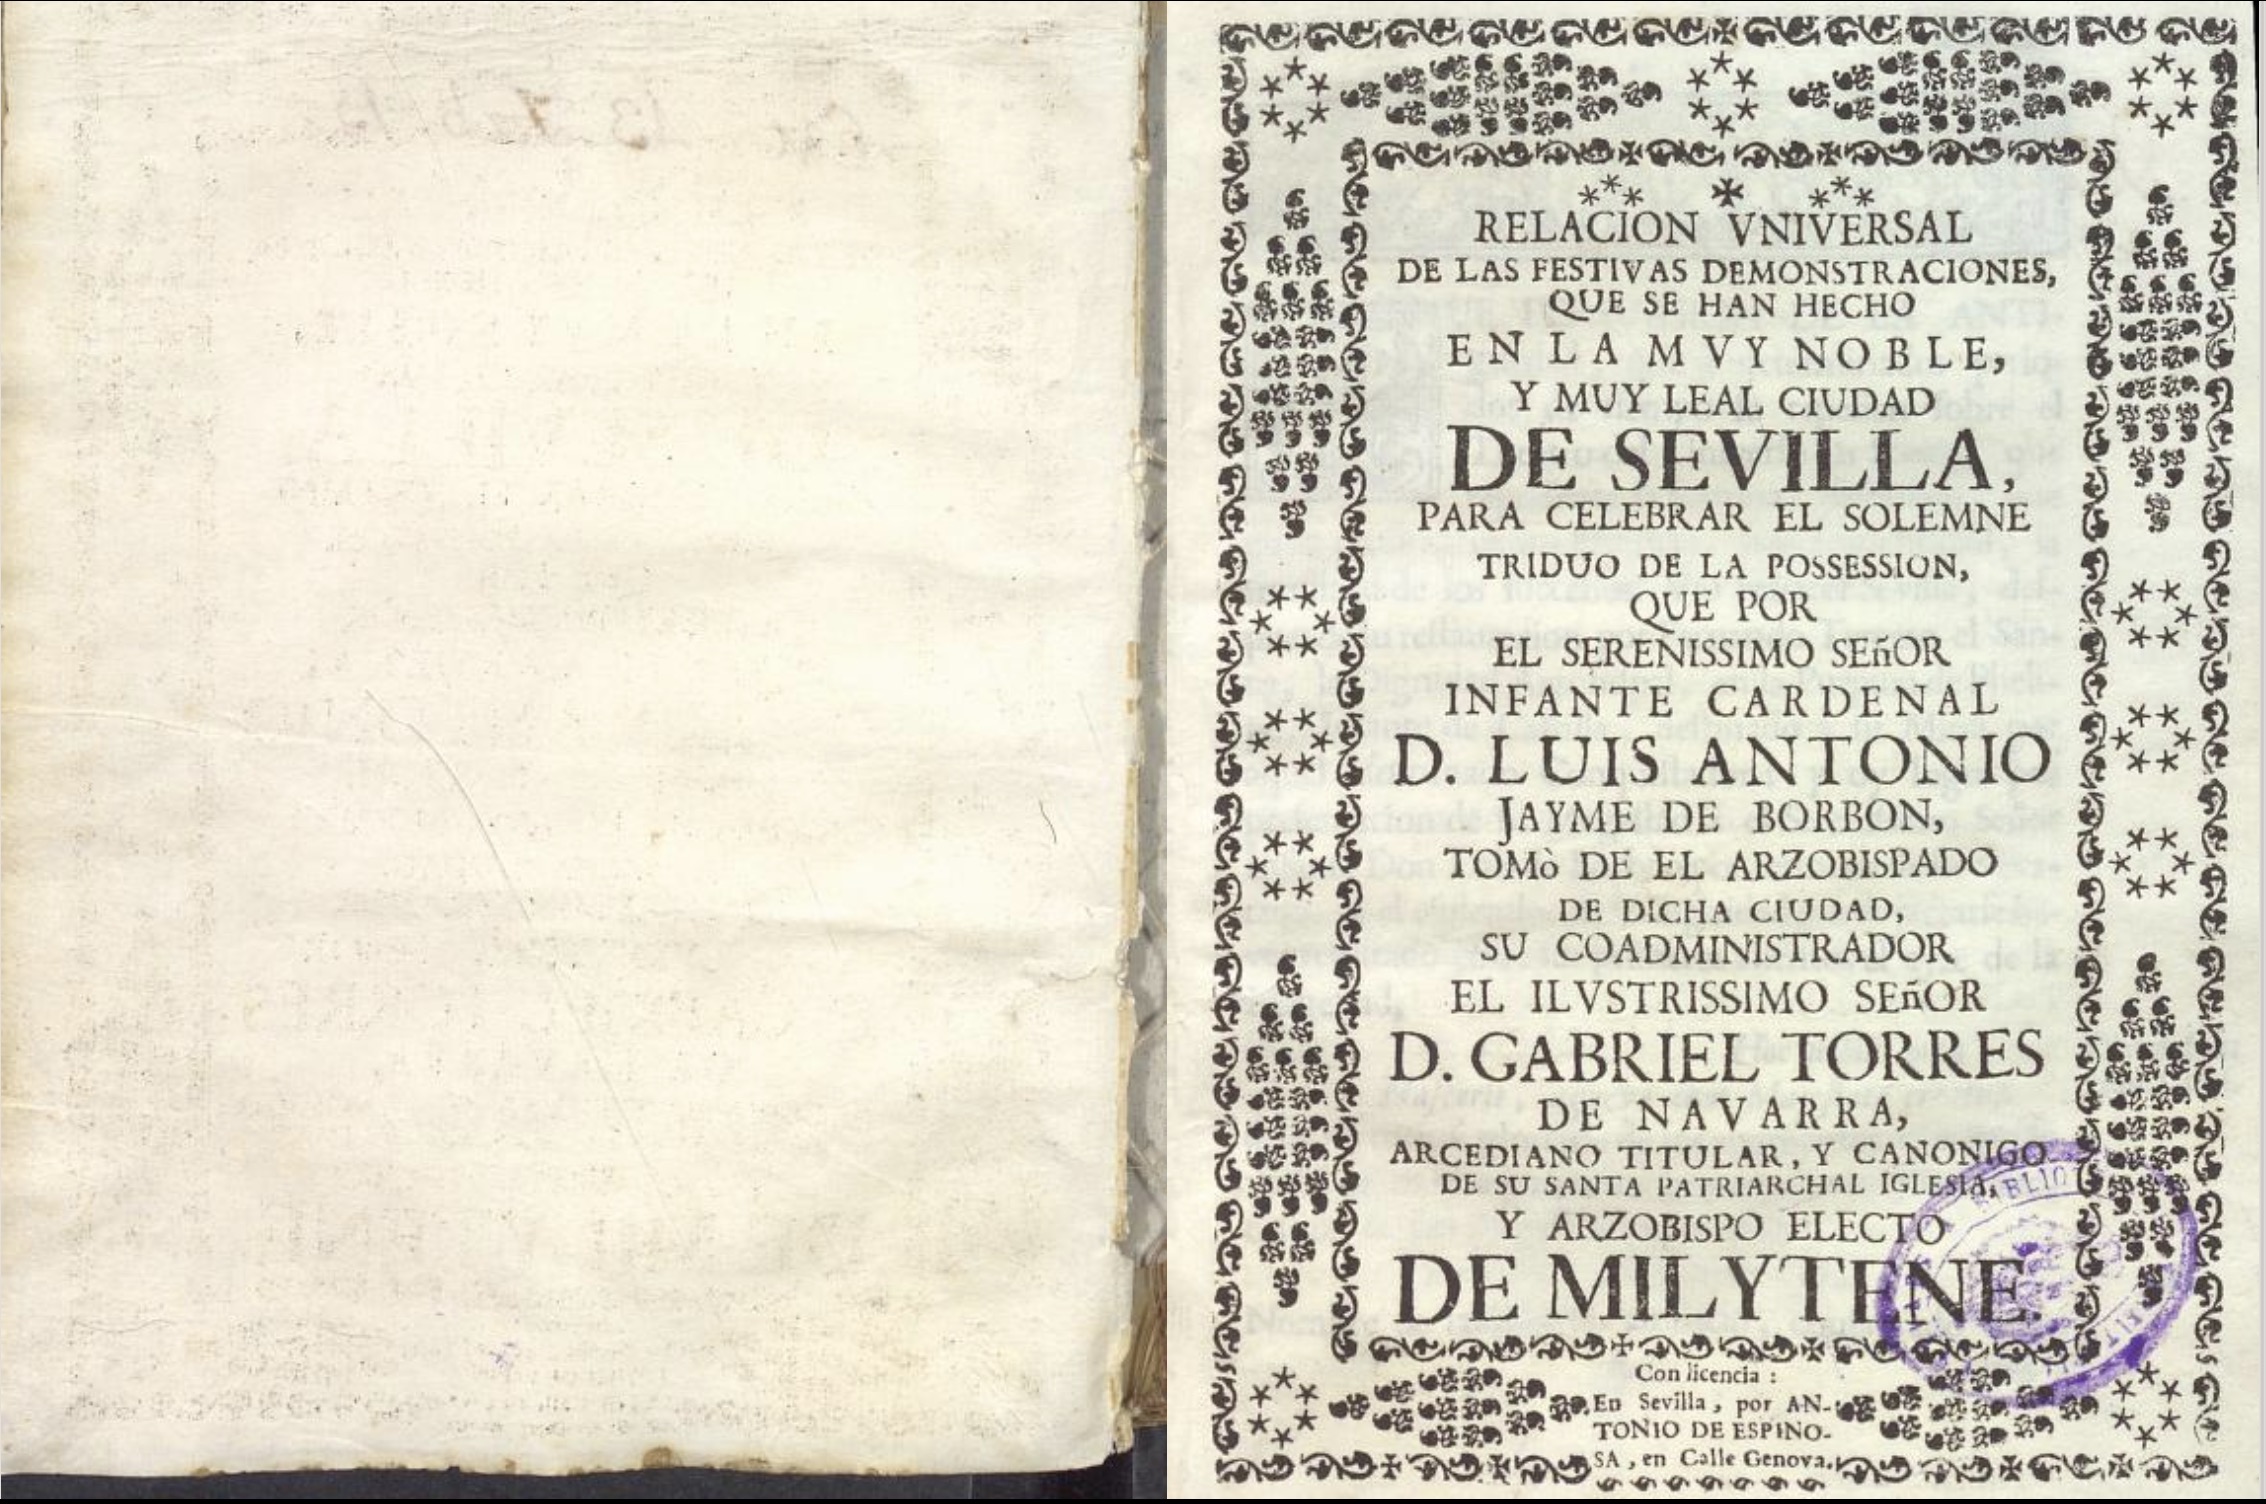 RELACION VNIVERSAL
DE LAS FESTIVAS DEMONSTRACIONES,
QUE SE HAN HECHO
EN LA MVY NOBLE,
Y MUY LEAL CIUDAD
DE SEVILLA,
PARA CELEBRAR EL SOLEMNE
TRIDUO DE LA POSSESSION,
QUE POR
EL SERENISSIMO SEñOR
INFANTE CARDENAL
D. LUIS ANTONIO
JAYME DE BORBON,
TOMò DE EL ARZOBISPADO
DE DICHA CIUDAD,
SU COADMINISTRADOR
EL ILVSTRISSIMO SEñOR
D. GABRIEL TORRES
DE NAVARRA,
ARCEDIANO TITULAR, Y CANONIGO
DE SU SANTA PATRIARCHAL IGLESIA,
Y ARZOBISPO ELECTO
DE MILYTENE.
Con licencia :
En Sevilla, por AN-
TONIO DE ESPINO-
SA, en Calle Genova.